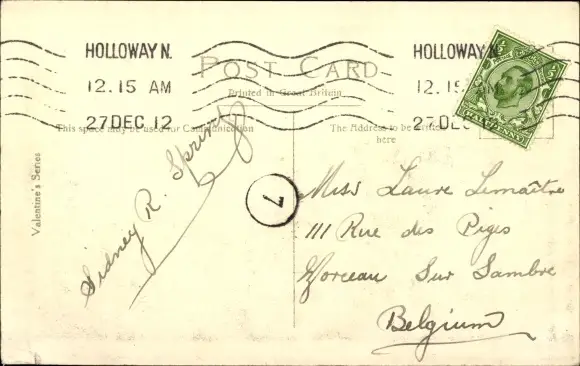 HOLLOWAY N.
12.15 AM
27 DEC 12
HOLLOWAY N.
12.15
27 DEC
POST CARD
Printed in Great Britain
This space may be used for Communication
The Address to be written
here
Valentine's Series
Sidney R. Sprunt
7
Miss Laure Lemaître
111 Rue des Piges
Morceau Sur Sambre
Belgium